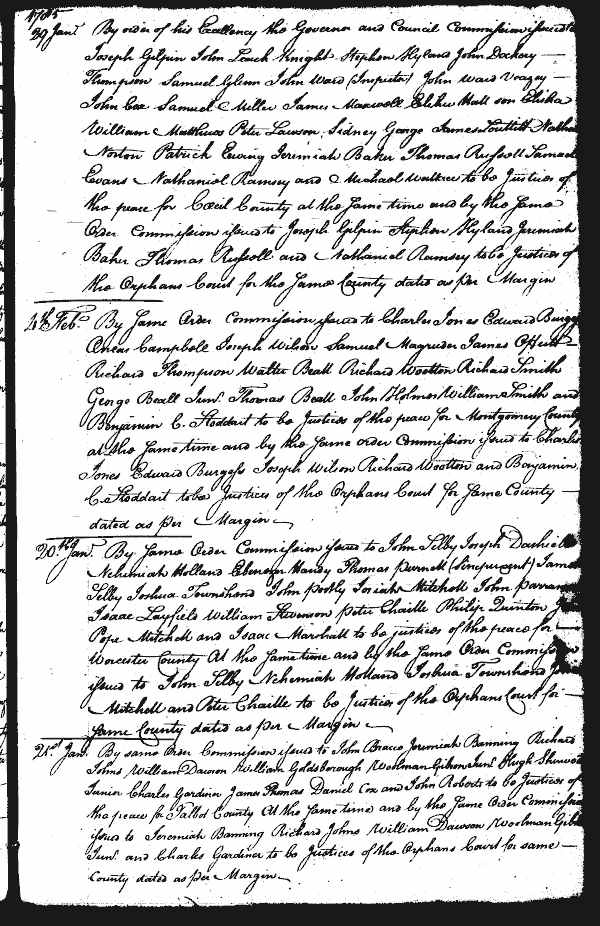 1785
29 Jany By order of his Excellency the Governor and Council Commission issued to
Joseph Gilpin John Leach Knight Stephen Hyland John Dockery
Thompson Samuel Glenn John Ward (Inspector) John Ward Veazey
John Cox Samuel Miller James Maxwell Elihu Hall son Elisha
William Matthews Peter Lawson, Sidney George James Louttitt Nathan
Norton Patrick Ewing Jeremiah Baker Thomas Russell Samuel
Evans Nathaniel Ramsey and Michael Wallace to be Justices of
the peace for Cecil County at the same time and by the same
Order Commission issued to Joseph Gilpin Stephen Hyland Jeremiah
Baker Thomas Russell and Nathaniel Ramsey to be Justices of
the Orphans Court for the same County dated as per Margin
By same Order Commission issued to Charles Jones Edward Burgess
Oneas Campbell Joseph Wilson Samuel Magruder James Offutt
Richard Thompson Walter Beall Richard Wootton Richard Smith
George Beall Junr. Thomas Beall John Holmes William Smith and
Benjamin C. Stoddart to be Justices of the peace for Montgomery County
at the same time and by the same order Commission issued to Charles
Jones Edward Burgess Joseph Wilson Richard Wootton and Benjamin
C. Stoddart to be Justices of the Orphans Court for same County
dated as per Margin
20th Jany. By same Order Commission issued to John Selby Joseph Dashiell
Nehemiah Holland Ebenezer Handy Thomas Purnell James
Selby Joshua Townshend John Postly Josiah Mitchell John Parramore
Isaac Layfield William Stevenson Peter Chaille Philip Quinton
Pope Mitchell and Isaac Marshall to be justices of the peace for
Worcester County At the same time and by the same Order Commission
issued to John Selby Nehemiah Holland Joshua Townshend
Mitchell and Peter Chaille to be Justices of the Orphans Court for
same County dated as per Margin
21st Jany. By same Order Commission issued to John Bracco Jeremiah Banning Richard
Johns William Dawson William Goldsborough Woolman Gibson Junr. Hugh Sherwood
Junior Charles Gardiner James Thomas Daniel Cox and John Roberts to be Justices of
the peace for Talbot County At the same time and by the same Order Commission
issued to Jeremiah Banning Richard Johns William Dawson Woolman Gibson
Junr. and Charles Gardiner to be Justices of the Orphans Court for same
County dated as per Margin